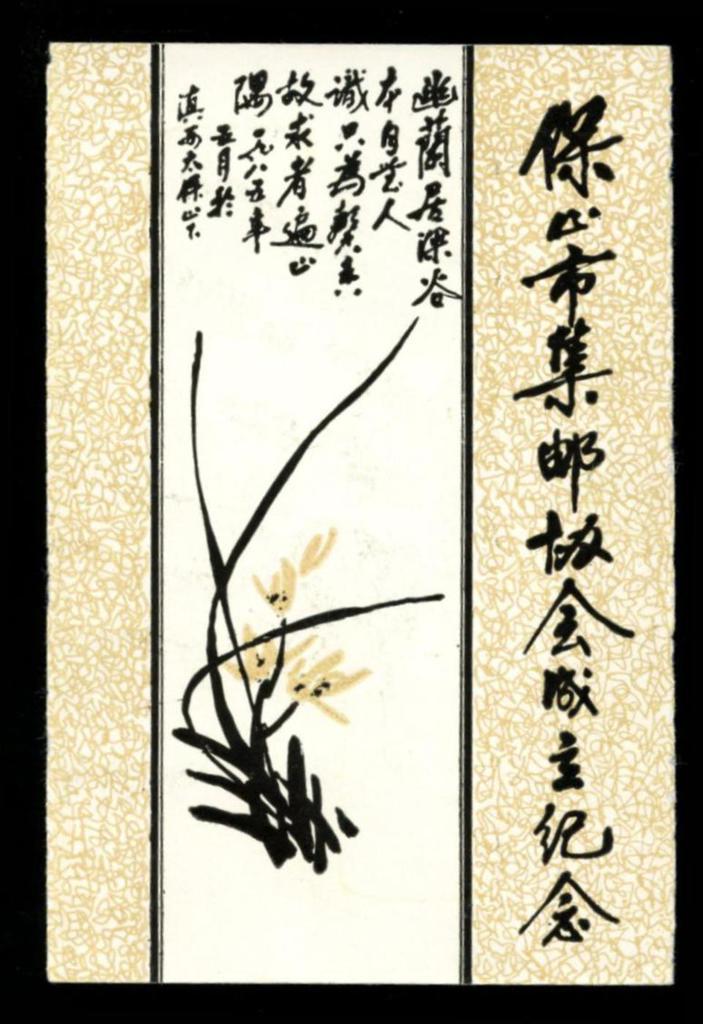 保山市集邮协会成立纪念
幽蘭居深谷
本自無人
識只為馨香
故求者遍山
隅一九八五年
五月於
滇西太保山下